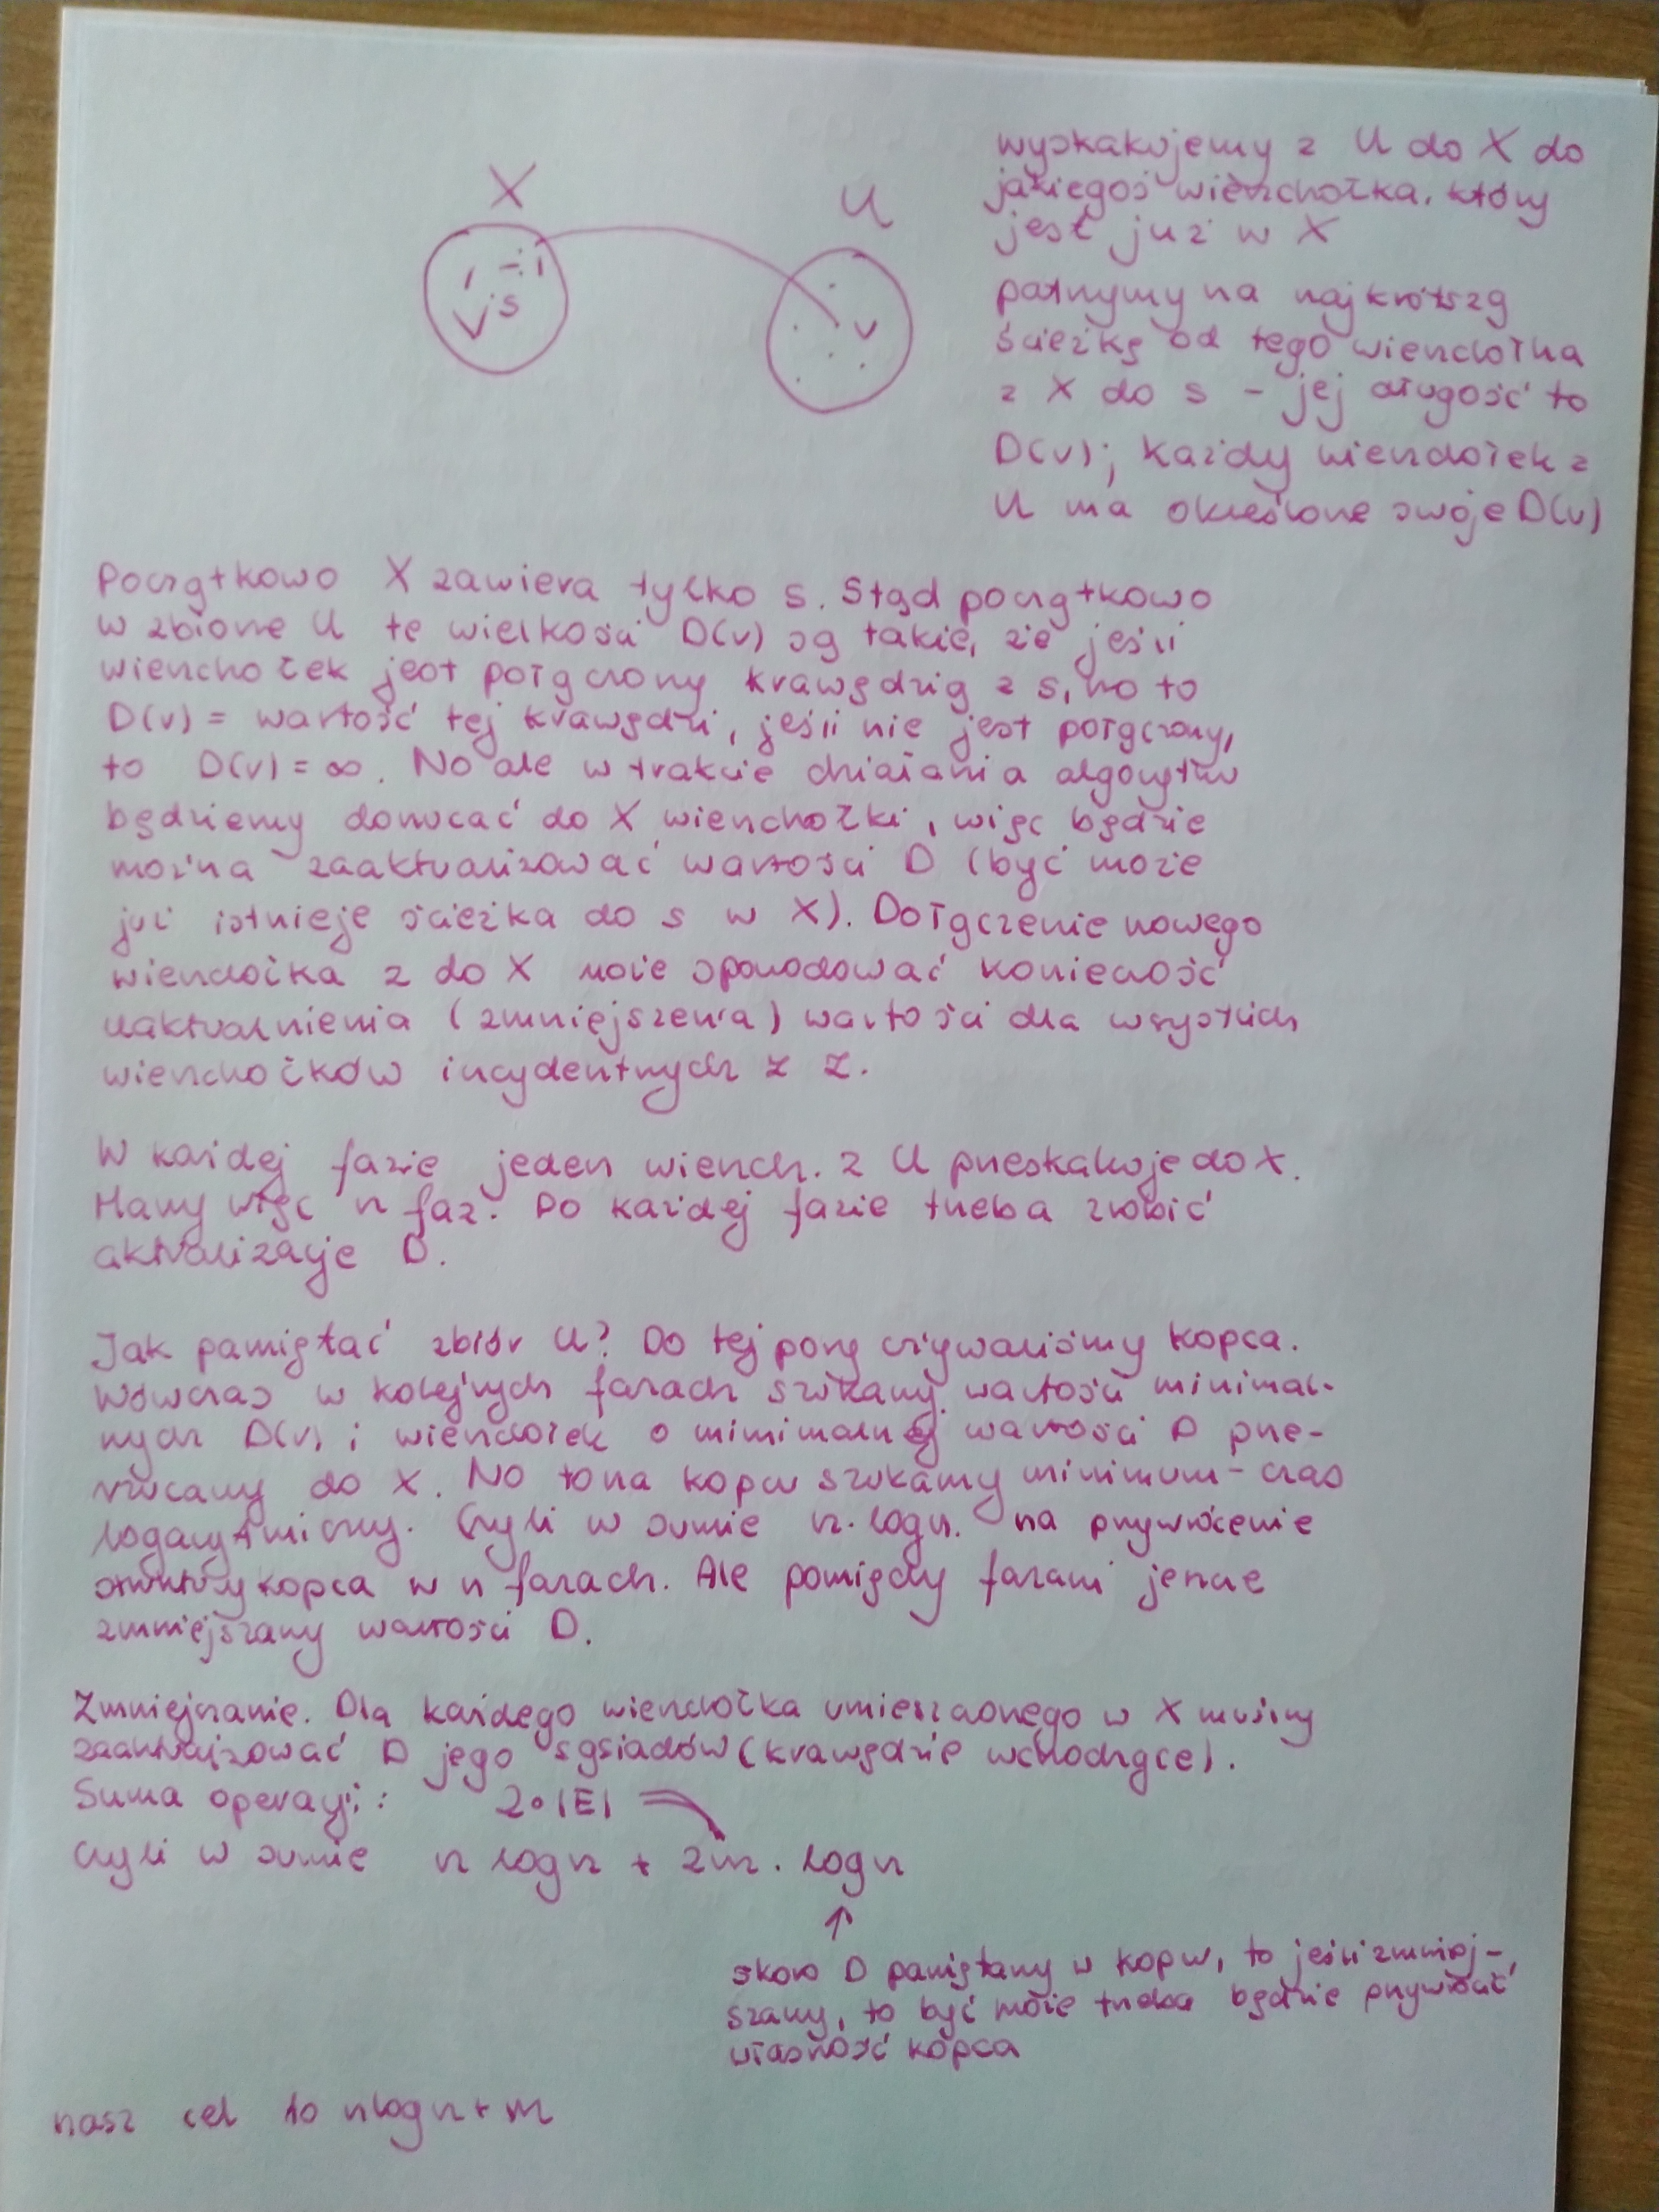 X
U
s
v
wyskakujemy z U do X do
jakiegoś wierzchołka, który
jest już w X
patrzymy na najkrótszą
ścieżkę od tego wierzchołka
z X do s - jej długość to
D(v); każdy wierzchołek z
U ma określone swoje D(v)
Początkowo X zawiera tylko s. Stąd początkowo
w zbiorze U te wielkości D(v) są takie, że jeśli
wierzchołek jest połączony krawędzią z s, no to
D(v) = wartość tej krawędzi, jeśli nie jest połączony,
to D(v) = ∞. No ale w trakcie działania algorytmu
będziemy dorzucać do X wierzchołki, więc będzie
można zaaktualizować wartości D (być może
już istnieje ścieżka do s w X). Dołączenie nowego
wierzchołka z do X może spowodować konieczność
uaktualnienia (zmniejszenia) wartości dla wszystkich
wierzchołków incydentnych z z.
W każdej fazie jeden wierzch. z U przeskakuje do X.
Mamy więc n faz. Po każdej fazie trzeba zrobić
aktualizacje D.
Jak pamiętać zbiór U? Do tej pory używaliśmy kopca.
Wówczas w kolejnych fazach szukamy wartości minimal-
nych D(v) i wierzchołek o minimalnej wartości D prze-
rzucamy do X. No to na kopcu szukamy minimum - czas
logarytmiczny. Czyli w sumie n·logn. na przywrócenie
struktury kopca w n fazach. Ale pomiędzy fazami jeszcze
zmniejszamy wartości D.
Zmniejszanie. Dla każdego wierzchołka umieszczonego w X musimy
zaaktualizować D jego sąsiadów (krawędzie wchodzące).
Suma operacji: 2·|E|
czyli w sumie n logn + 2m · logn
skoro D pamiętamy w kopcu, to jeśli zmniej-
szamy, to być może trzeba będzie przywrócić
własność kopca
nasz cel to nlogn + m